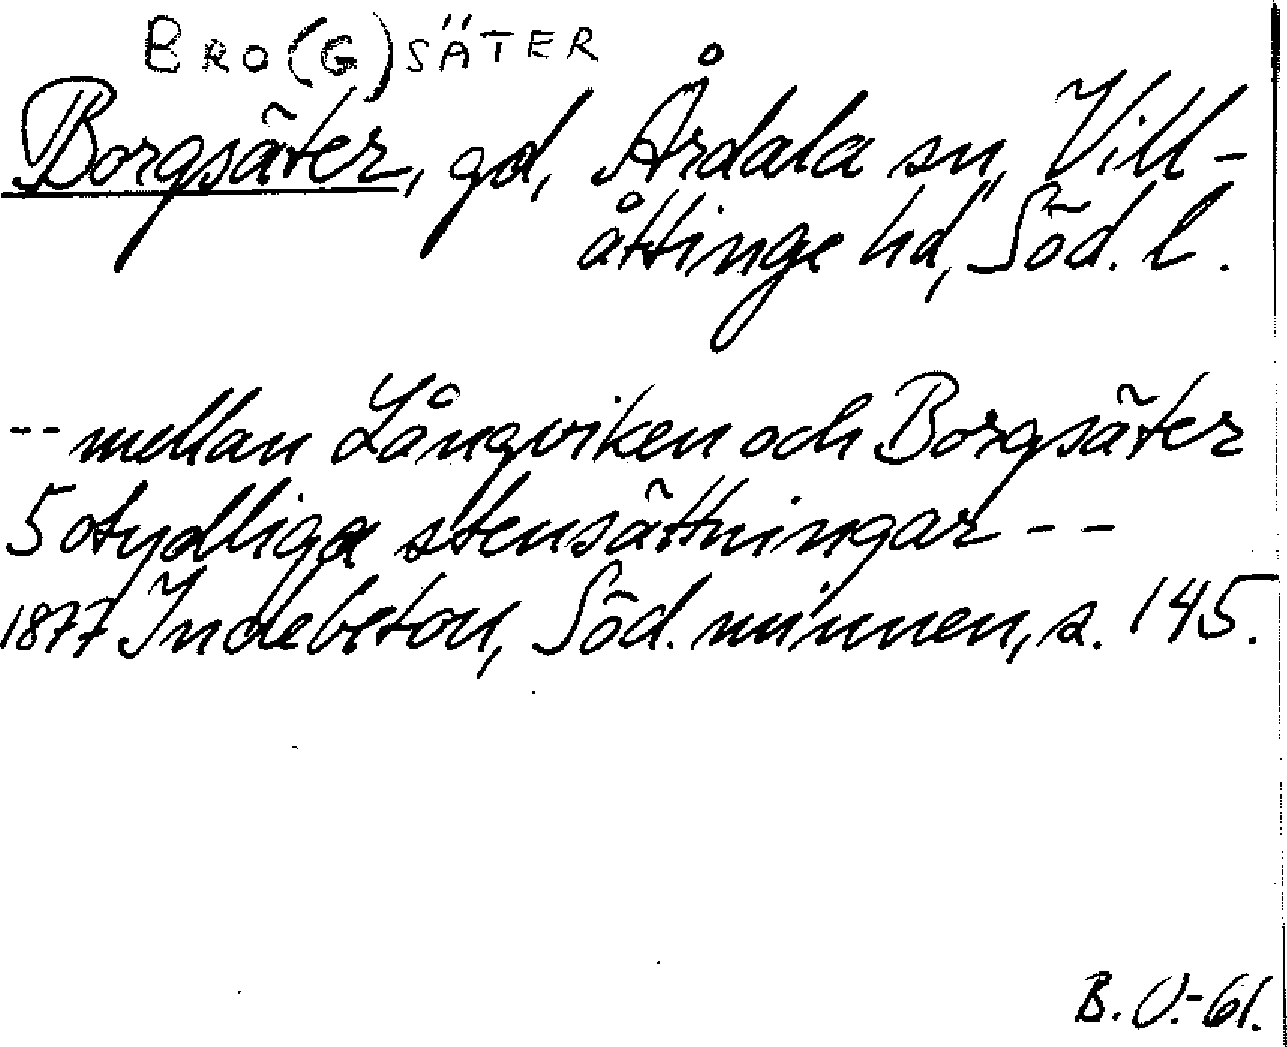 BRO(G)SÄTER
Borgsäter, gd, Årdala sn, Vill-
åttinge hd, Söd. l.
-- mellan Långviken och Borgsäter
5 otydliga stensättningar --
1877 Indebetou, Söd. minnen, s. 145.
B. U.-61.